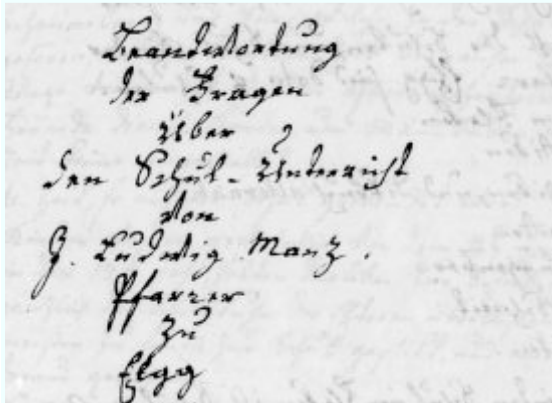 Beantwortung
der Fragen
über
den Schul-Unterricht
von
J. Ludwig Manz.
Pfarrer
zu
Elgg